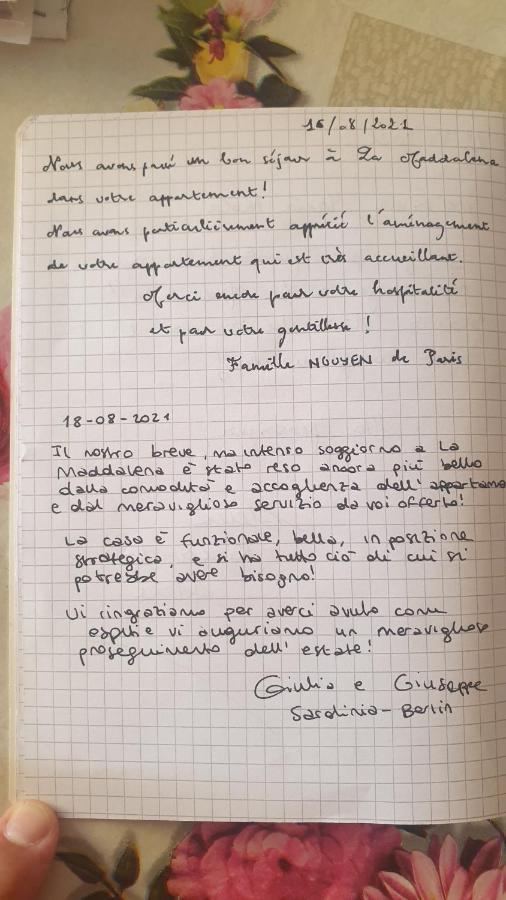 16/08/2021
Nous avons passé un bon séjour à La Maddalena
dans votre appartement!
Nous avons particulièrement apprécié l'aménagement
de votre appartement qui est très accueillant.
Merci encore pour votre hospitalité
et pour votre gentillesse!
Famille NGUYEN de Paris
18-08-2021
Il nostro breve, ma intenso soggiorno a La
Maddalena è stato reso ancora più bello
dalla comodità e accoglienza dell'appartame
e dal meraviglioso servizio da voi offerto!
La casa è funzionale, bella, in posizione
strategica, e si ha tutto ciò di cui si
potrebbe avere bisogno!
Vi ringraziamo per averci avuto come
ospiti e vi auguriamo un meraviglioso
proseguimento dell'estate!
Giulia e Giuseppe
Sardinia-Berlin